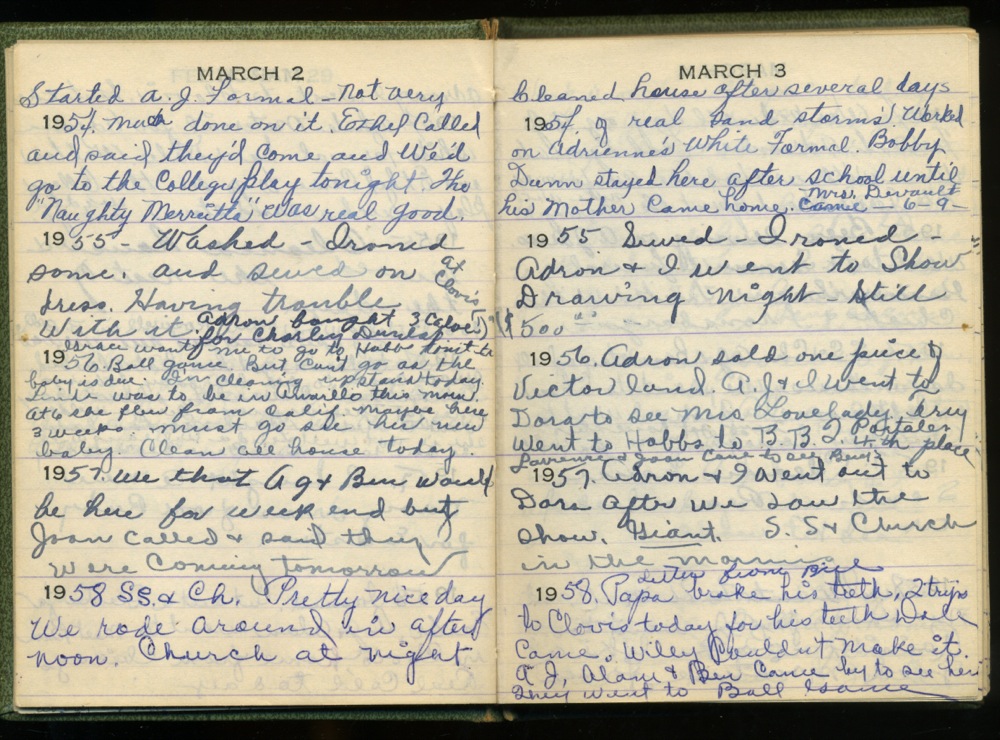 MARCH 2
Started A. J. Formal - Not very
1954. Much done on it. Ethel Called
and said they'd come and We'd
go to the College play tonight. The
"Naughty Merrietta" was real good.
1955 - Washed - Ironed
some. and sewed on
dress. Having trouble
With it. Adron bought 3 Calves
at Clovis
for Charley Dunlap
me to go to Hobbs
1956. Ball game. But Can't go as the
baby is due. Am Cleaning up today.
was to be in Amarillo this morn.
At 6 she flew from Calif. Maybe here
3 weeks. must go see her new
baby. Clean all house today.
1957. We that A J & Ben would
be here for week end but
Joan Called & said they
were Coming tomorrow
1958 SS. & Ch. Pretty nice day
We rode around in after
noon. Church at night
MARCH 3
Cleaned house after several days
1954. of real sand storms! Worked
on Adrienne's White Formal. Bobby
Dunn stayed here after school until
his Mother Came home. Mrs. Devault
Came - 6-9-
1955 Sewed - Ironed -
Adron & I went to Show
Drawing night - Still
$500
1956. Adron sold one piece of
Victor land. A. J. & I Went to
Dora to see Mrs Lovelady. They
Went to Hobbs to B. B. T. Portales
4th place
Lawrence & Joan Came to see Ben
1957. Adron & I Went out to
Dora after we saw the
show. Giant. S. S & Church
in the morning
Letter from
1958. Papa broke his teeth, 2 trips
to Clovis today for his teeth
Came. Wiley Couldn't make it.
A J, Alan & Ben Came by to see
They went to Ball Game